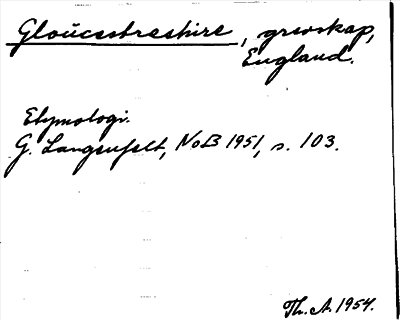 Gloucestershire, grevskap,
England.
Etymologi.
G. Langenfelt, NoB 1951, s. 103.
Th. A. 1954.